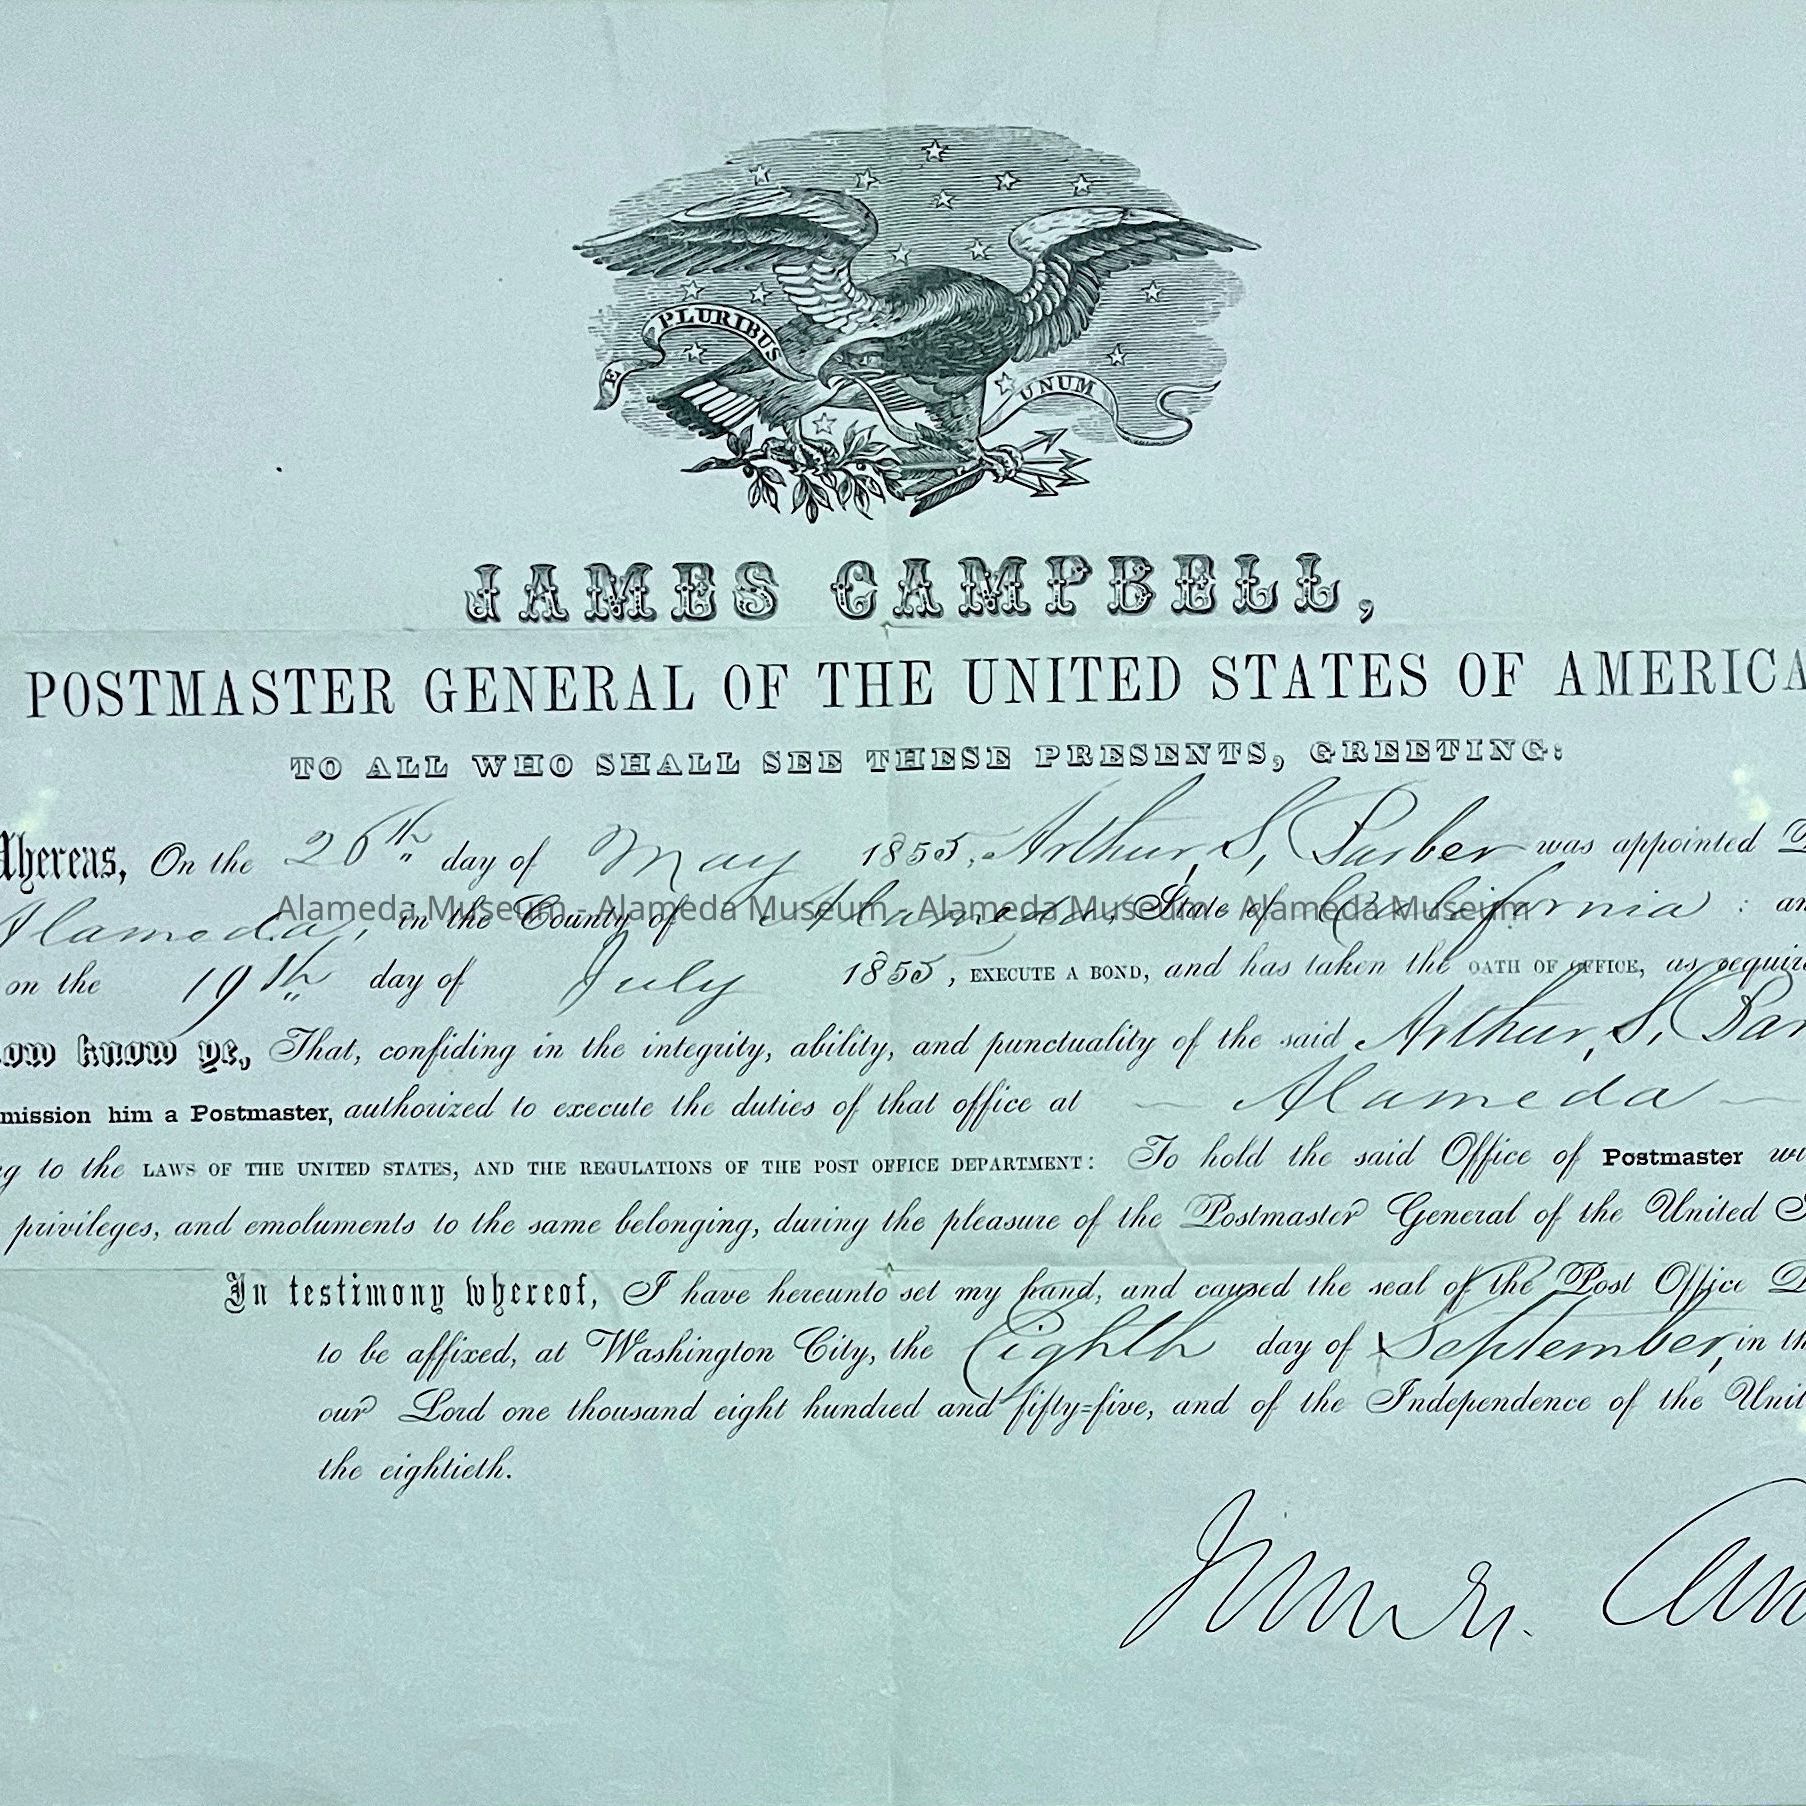 E PLURIBUS UNUM
JAMES CAMPBELL,
POSTMASTER GENERAL OF THE UNITED STATES OF AMERICA
TO ALL WHO SHALL SEE THESE PRESENTS, GREETING:
Whereas, On the 26th day of May 1855, Arthur S. Barber was appointed
Alameda, in the County of Alameda, State of California : an
Alameda Museum - Alameda Museum - Alameda Museum - Alameda Museum
on the 19th day of July 1855, EXECUTE A BOND, and has taken the OATH OF OFFICE, as require
ow know ye, That, confiding in the integrity, ability, and punctuality of the said Arthur S. Bar
mission him a Postmaster, authorized to execute the duties of that office at Alameda
g to the LAWS OF THE UNITED STATES, AND THE REGULATIONS OF THE POST OFFICE DEPARTMENT: To hold the said Office of Postmaster wi
privileges, and emoluments to the same belonging, during the pleasure of the Postmaster General of the United S
In testimony whereof, I have hereunto set my hand, and caused the seal of the Post Office D
to be affixed, at Washington City, the Eighth day of September, in th
our Lord one thousand eight hundred and fifty=five, and of the Independence of the Unit
the eightieth.
James Cam